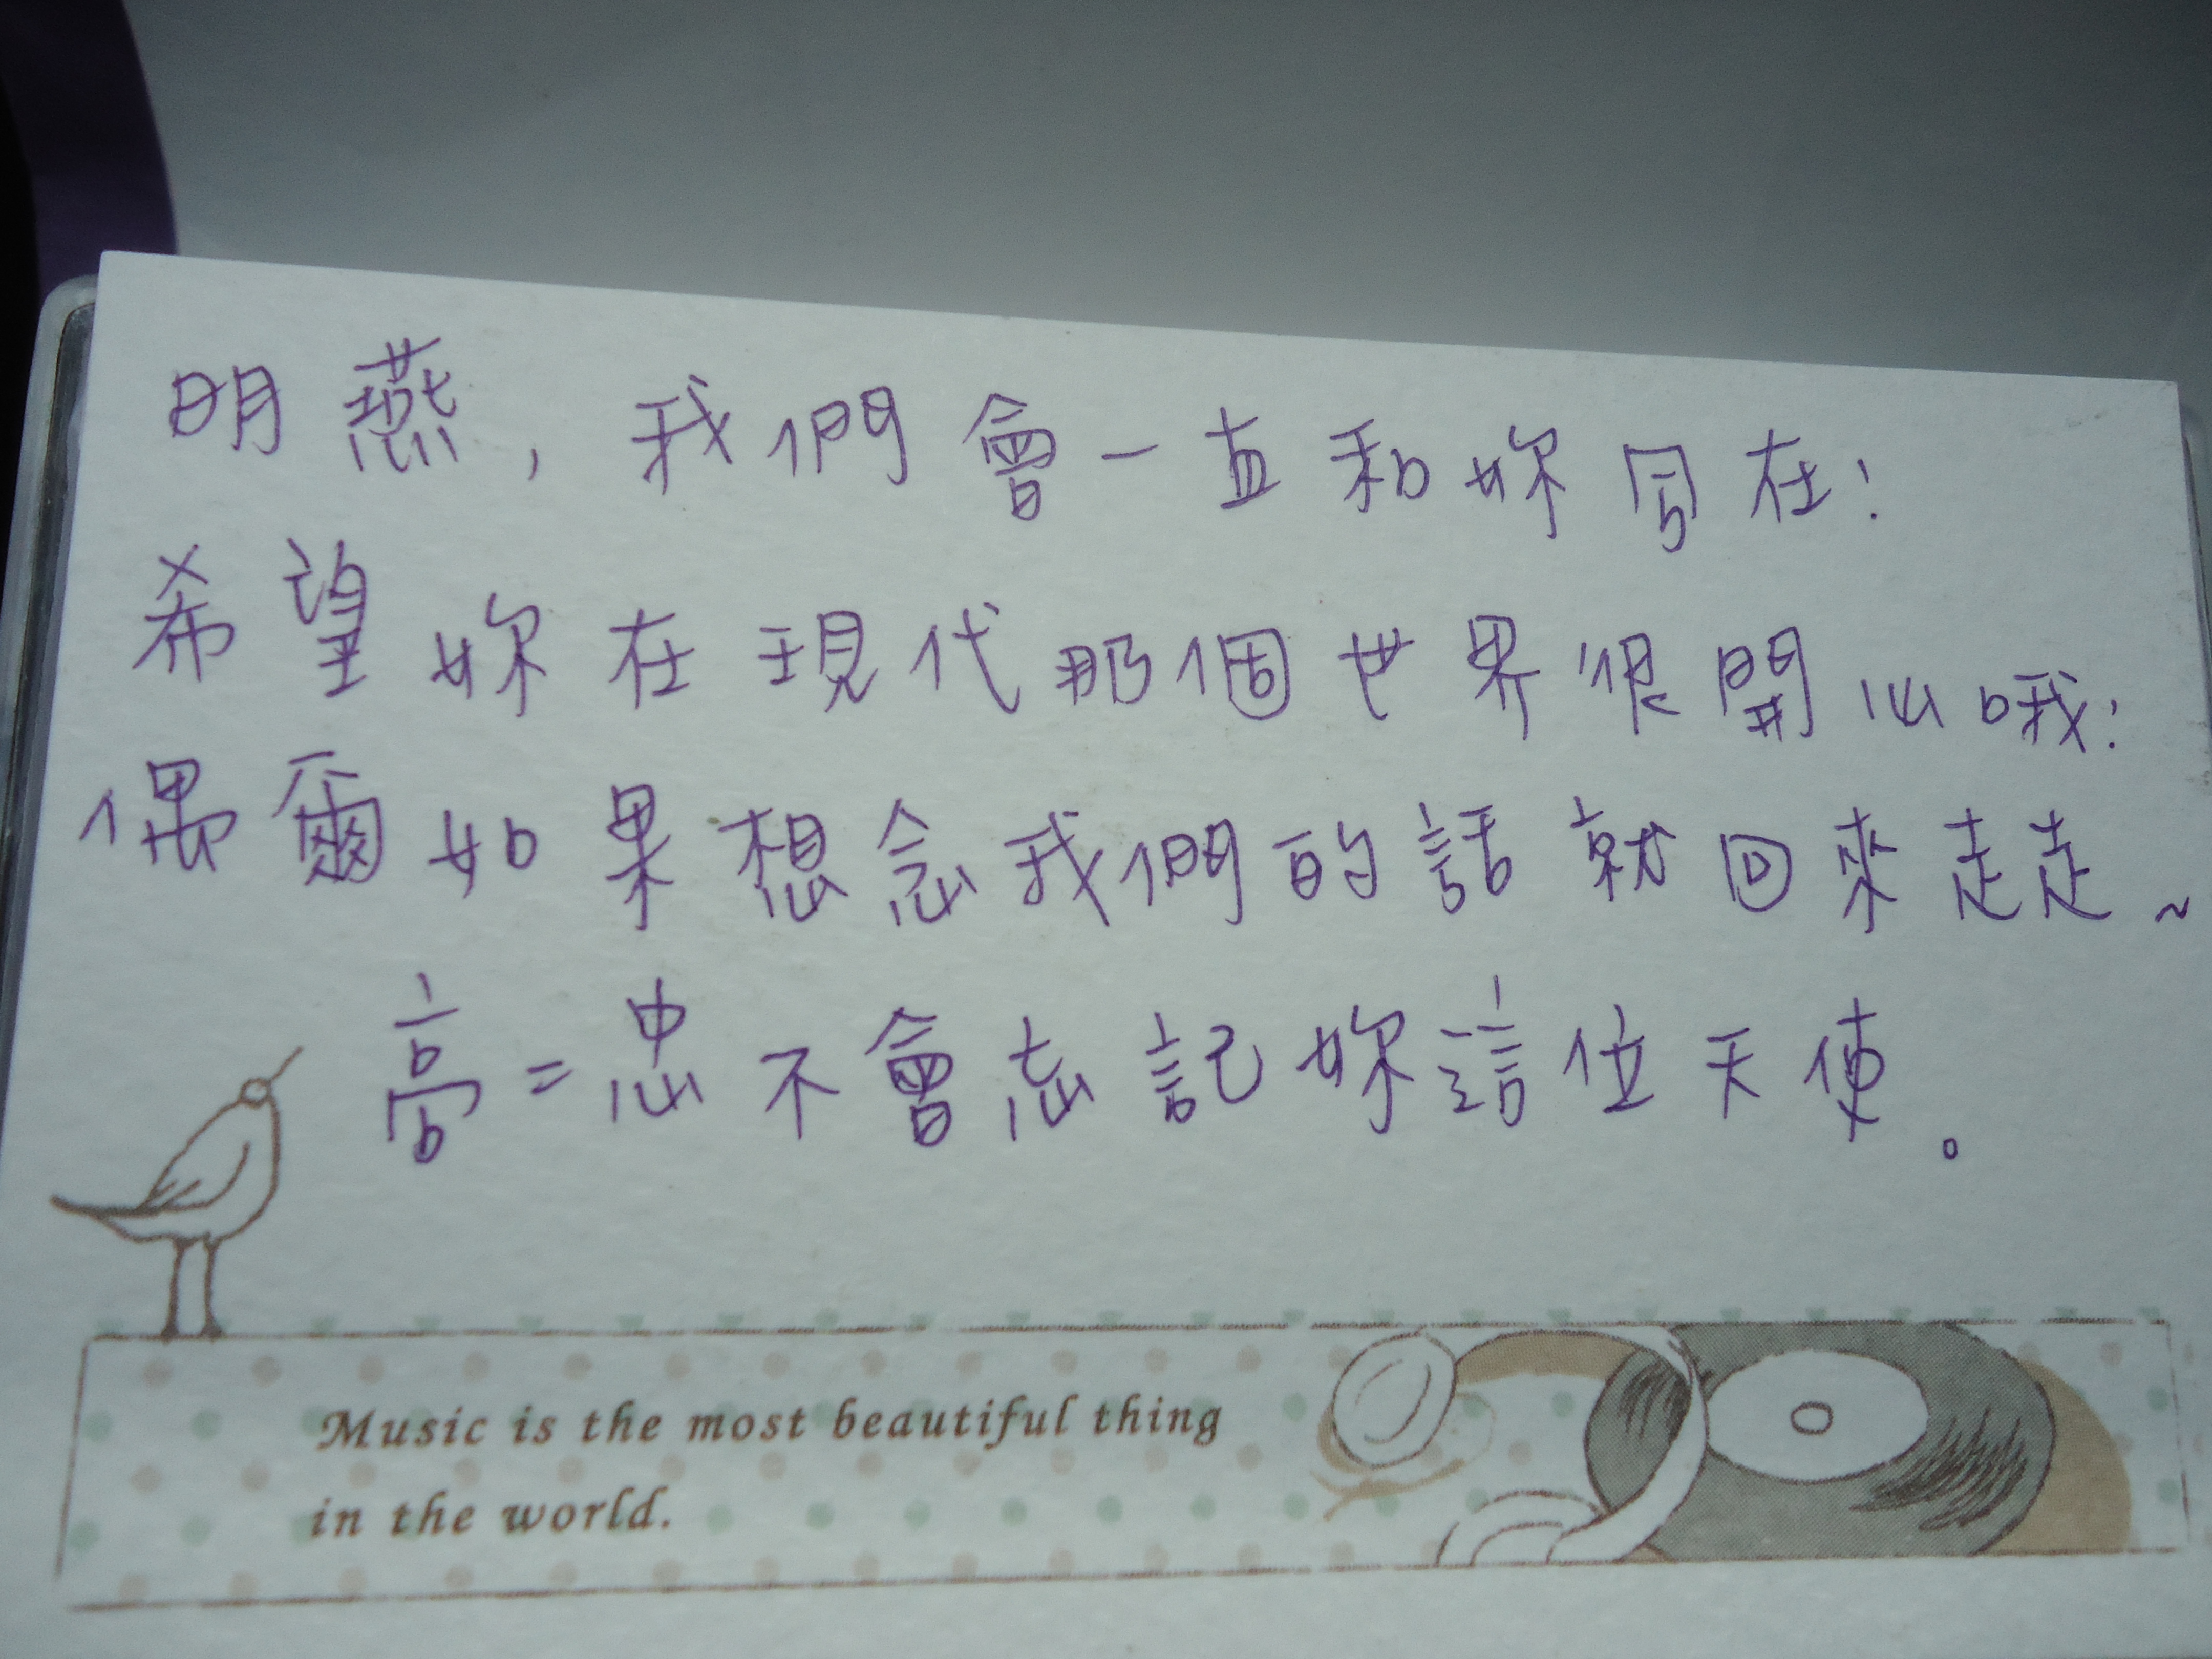 明燕，我們會一直和妳同在！
希望妳在現代那個世界很開心哦！
偶爾如果想念我們的話就回來走走~
高二忠不會忘記妳這位天使。
Music is the most beautiful thing
in the world.